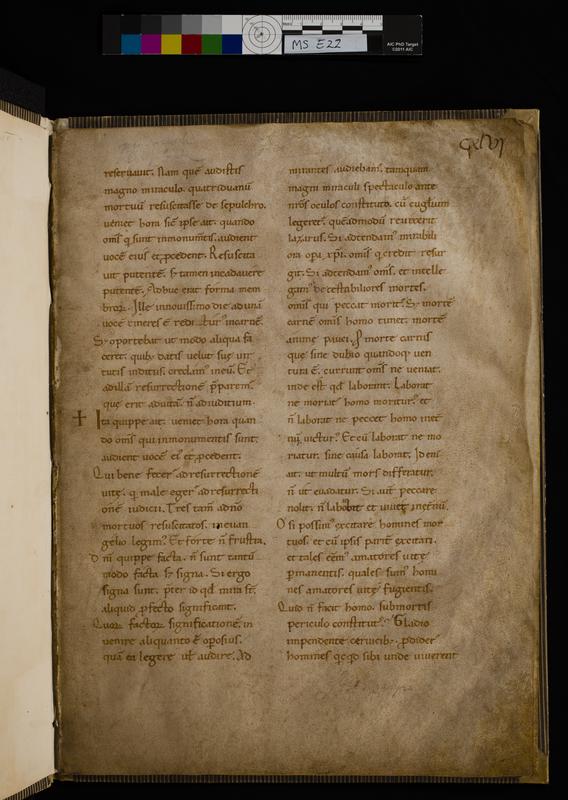 MS E22
AIC PhD Target
©2011 AIC
cxlvi
reseruauit. Nam quē audistis
magno miraculo. quatriduanū
mortuū resuscitasse de sepulchro.
ueniet hora sic̄ ipse ait. quando
oms̄ q̄ sunt in monum̄tis. audient
uocē eius et p̱cedent. Resuscita
uit putentē. sꝫ tamen in cadauere
putentē. Adhuc erat forma mem
broꝝ. Ille in nouissimo die ad unā
uocē cineres ē redi tur' in carnē.
Sꝫ oportebat ut modo aliqua fa
ceret. quibꝰ datis uelut suę uir
tutis inditiis. credam' in eū. Et
ad illā resurrectionē p̄parem'.
que erit ad uitā. ñ ad iuditium.
Ita quippe ait. ueniet hora quan
do oms̄ qui in monumentis sunt.
audient uocē ei' et p̱cedent.
Qui bene fecer̄ ad resurrectionē
uitę. q̄ male eger̄ ad resurrecti
onē iudicii. Tres tam̄ ad nō
mortuos resuscitatos. in euan
gelio legim'. Et forte ñ frustra.
Dn̄i quippe facta. ñ sunt tantū
modo facta sꝫ signa. Si ergo
signa sunt. p̄ter id qđ mira st̄.
aliquid p̱fecto significant.
Quoꝝ factoꝝ significationē. in
uenire aliquanto ē op̱osius.
quā ea legere uł audire. Ad
mirantes audiebam'. tamquam
magni miraculi spectaculo ante
nr̄os oculos constituto. cū euglīum
legeret'. quēadmodū reuixerit
lazarus. Si adtendam' mirabili
ora op̱a xp̄i. omīs q̄ credit resur
git. Si adtendam' oms̄. et intelle
gam' detestabiliores mortes.
omīs qui peccat morit̄. Sꝫ mortē
carnē omīs homo timet. mortē
animę pauci. P̱ morte carnis
que sine dubio quandoqꝫ uen
tura ē. currunt oms̄ ne ueniat.
inde est qđ laborant. Laborat
ne moriat' homo moritur'. et
ñ laborat ne peccet homo in et̄
nū uictur'. Et cū laborat ne mo
riatur. sine causa laborat. Id eni
ait. ut multū mors differatur.
ñ ut euadatur. Si aut̄ peccare
nolit. ñ laborat et uiuet in et̄nū.
O si possim' excitare homines mor
tuos. et cū ipsis parit̄ excitari.
et tales eēm' amatores uitę
p̱manentis. quales sunt homi
nes amatores uitę fugientis.
Quid ñ facit homo. sub mortis
periculo constitut'? Gladio
inpendente ceruicibꝫ. p̱dider̄
homines qcqd sibi unde uiuerent